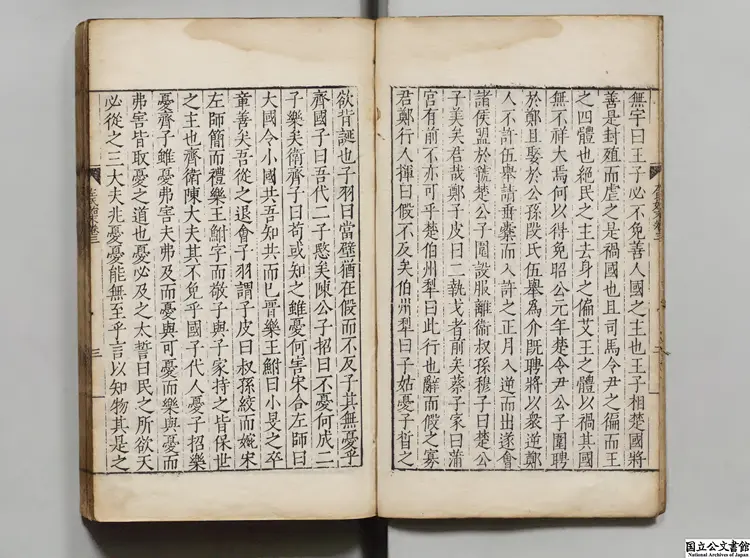 無宇曰王子必不免善人國之主也王子相楚國將
善是封殖而虐之是禍國也且司馬令尹之偏而王
之四體也絶民之主去身之偏艾王之體以禍其國
無不祥大焉何以得免昭公元年楚令尹公子圍聘
於鄭且娶於公孫段氏伍舉爲介既聘將以衆逆鄭
人不許伍舉請垂櫜而入許之正月入逆而出遂會
諸侯盟於虢楚公子圍設服離衞叔孫穆子曰楚公
子美矣君哉鄭子皮曰二執戈者前矣蔡子家曰蒲
宮有前不亦可乎楚伯州犁曰此行也辭而假之寡
君鄭行人揮曰假不反矣伯州犁曰子姑憂子晳之
欲背誕也子羽曰當璧猶在假而不反子其無憂乎
齊國子曰吾代二子愍矣陳公子招曰不憂何成二
子樂矣衛齊子曰苟或知之雖憂何害宋合左師曰
大國令小國共吾知共而已晉樂王鮒曰小旻之卒
章善矣吾從之退會子羽謂子皮曰叔孫絞而婉宋
左師簡而禮樂王鮒字而敬子與子家持之皆保世
之主也齊衛陳大夫其不免乎國子代人憂子招樂
憂齊子雖憂弗害夫弗及而憂與可憂而樂與憂而
弗害皆取憂之道也憂必及之太誓曰民之所欲天
必從之三大夫兆憂憂能無至乎言以知物其是之
三
国立公文書館
National Archives of Japan